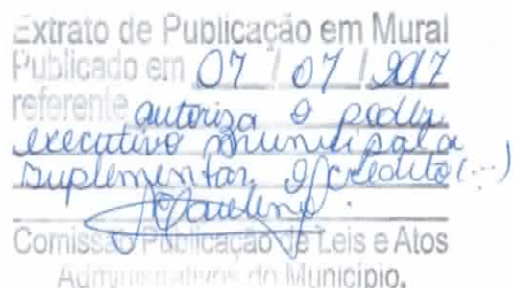 Extrato de Publicação em Mural
Publicado em 07 / 07 / 2017
referente autoriza o poder
executivo municipal a
suplementar o crédito (...)
Comissão Publicação de Leis e Atos
Administrativos do Município.